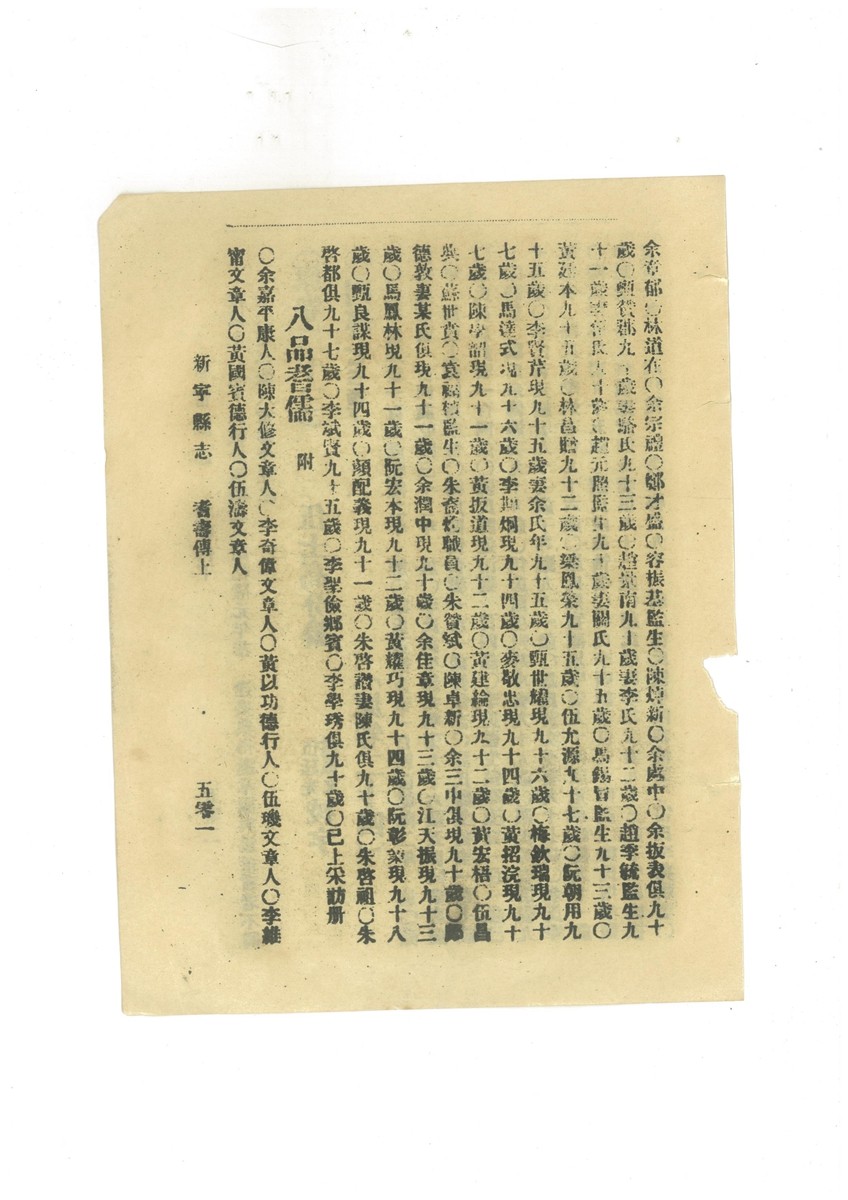 余章郁〇林道在〇余宗禮〇鄭才盛〇容振基監生〇陳焯新〇余處中〇余拔表俱九十
歲〇甄贊鄰九十歲妻駱氏九十三歲〇趙景南九十歲妻李氏九十二歲〇趙李統監生九
十一歲趙元熙監生九十歲妻關氏九十五歲〇馬錫晉監生九十三歲〇
黃建本九十五歲〇林昌贍九十二歲〇梁鳳榮九十五歲〇伍允源九十七歲〇阮朝用九
十五歲〇李賢芹現九十五歲妻余氏年九十五歲〇甄世耀現九十六歲〇梅欽瑞現九十
七歲〇馬達式現九十六歲〇李炯現九十四歲〇麥敬忠現九十四歲〇黃招浣現九十
七歲〇陳學韶現九十一歲〇黃扳道現九十二歲〇黃建綸現九十二歲〇黃宏梧〇伍昌
〇蘇世賁〇袁監生〇朱喬職員〇朱贊斌〇陳卓新〇余三中俱現九十歲〇鄭
德敦妻某氏俱現九十一歲〇余潤中現九十歲〇余佳章現九十三歲〇江天振現九十三
歲〇馬鳳林現九十一歲〇阮宏本現九十二歲〇黃耀巧現九十四歲〇阮彰業現九十八
歲〇甄良謀現九十四歲〇顏配義現九十一歲〇朱啓讚妻陳氏俱九十歲〇朱啓祖〇朱
啓都俱九十七歲〇李斌賢九十五歲〇李聖儉鄉賓〇李學琇俱九十歲〇已上采訪册
八品耆儒 附
〇余嘉平康人〇陳大修文章人〇李奇偉文章人〇黃以功德行人〇伍璣文章人〇李維
甯文章人〇黃國賓德行人〇伍濤文章人
新寧縣志 耆壽傳上 五零一